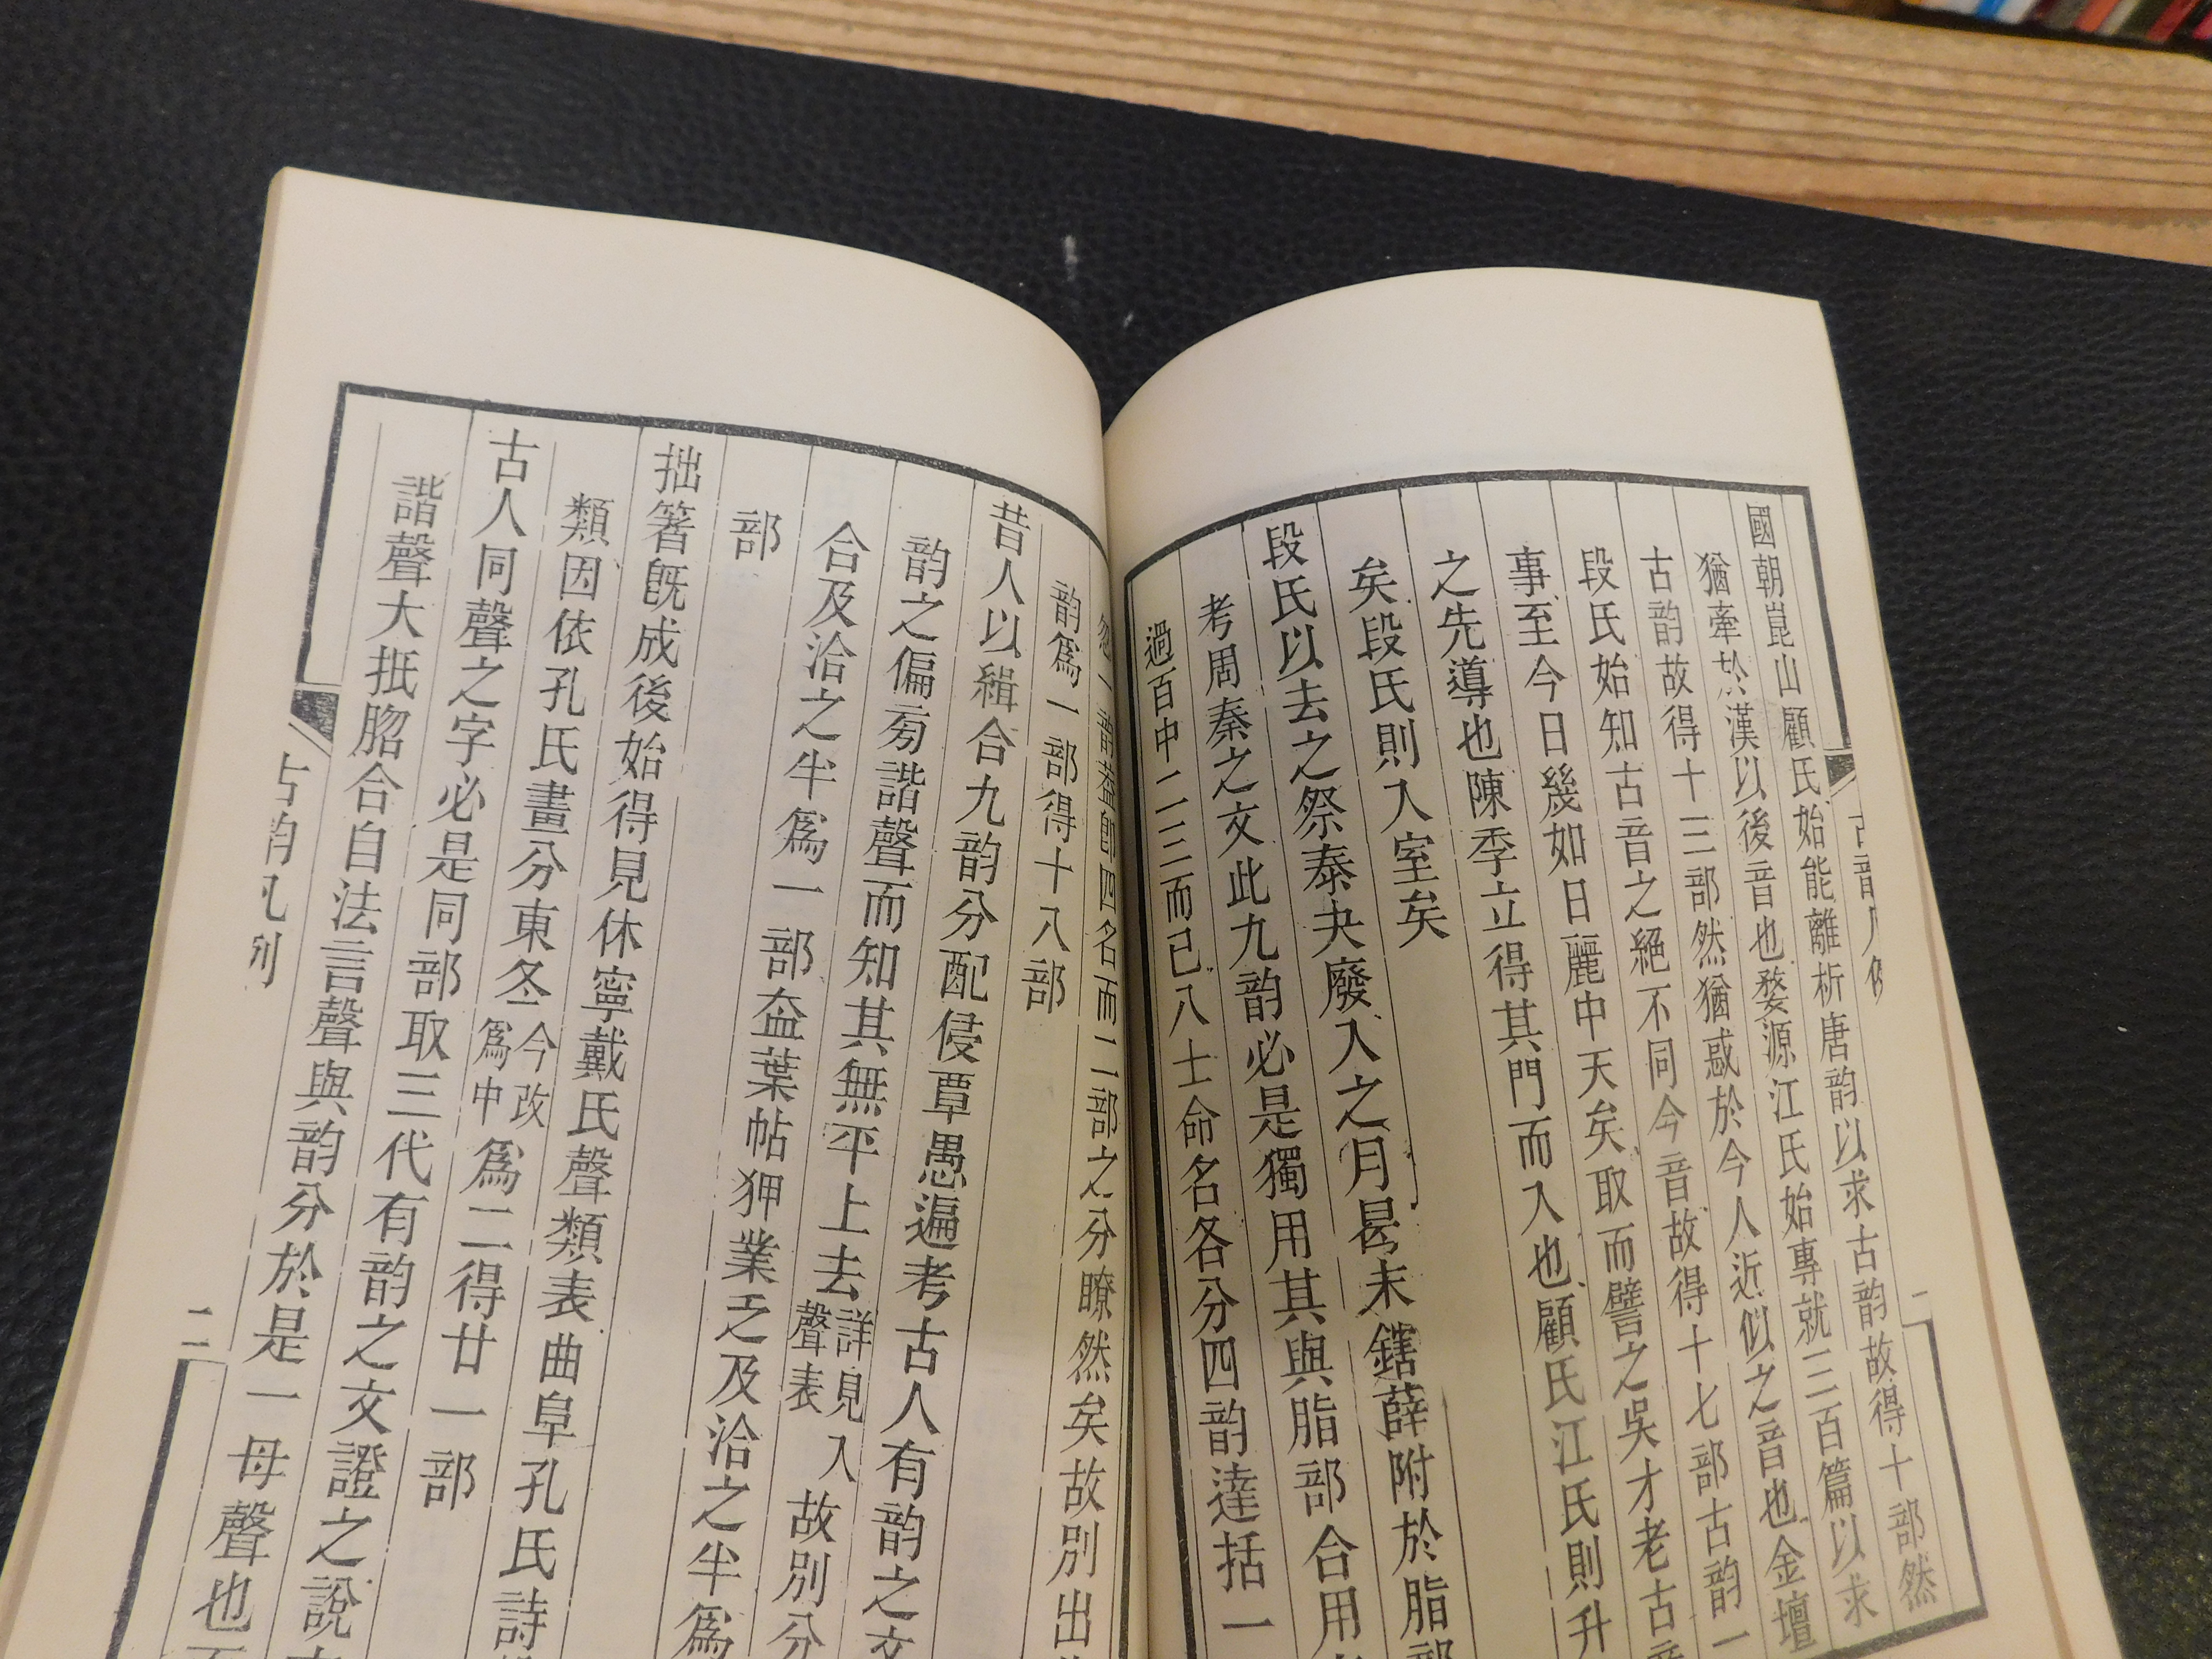 國朝崑山顧氏始能離析唐韵以求古韵故得十部然
猶牽於漢以後音也婺源江氏始專就三百篇以求
古韵故得十三部然猶惑於今人近似之音也金壇
段氏始知古音之絕不同今音故得十七部古韵一
事至今日幾如日麗中天矣取而譬之吳才老古音
之先導也陳季立得其門而入也顧氏江氏則升
矣段氏則入室矣
段氏以去之祭泰夬廢入之月曷末鎋薛附於脂部
考周秦之文此九韵必是獨用其與脂部合用
過百中二三而已八士命名各分四韵達括一
名而二部之分瞭然矣故別出
韵爲一部得十八部
昔人以緝合九韵分配侵覃愚遍考古人有韵之文
韵之偏旁諧聲而知其無平上去詳見聲表入故別分
合及洽之半爲一部盍葉帖狎業乏及洽之半爲
部
拙箸旣成後始得見休寧戴氏聲類表曲阜孔氏詩
類因依孔氏畫分東冬今改爲中爲二得廿一部
古人同聲之字必是同部取三代有韵之文證之說
諧聲大抵脗合自法言聲與韵分於是一母聲也
古韵凡例
二